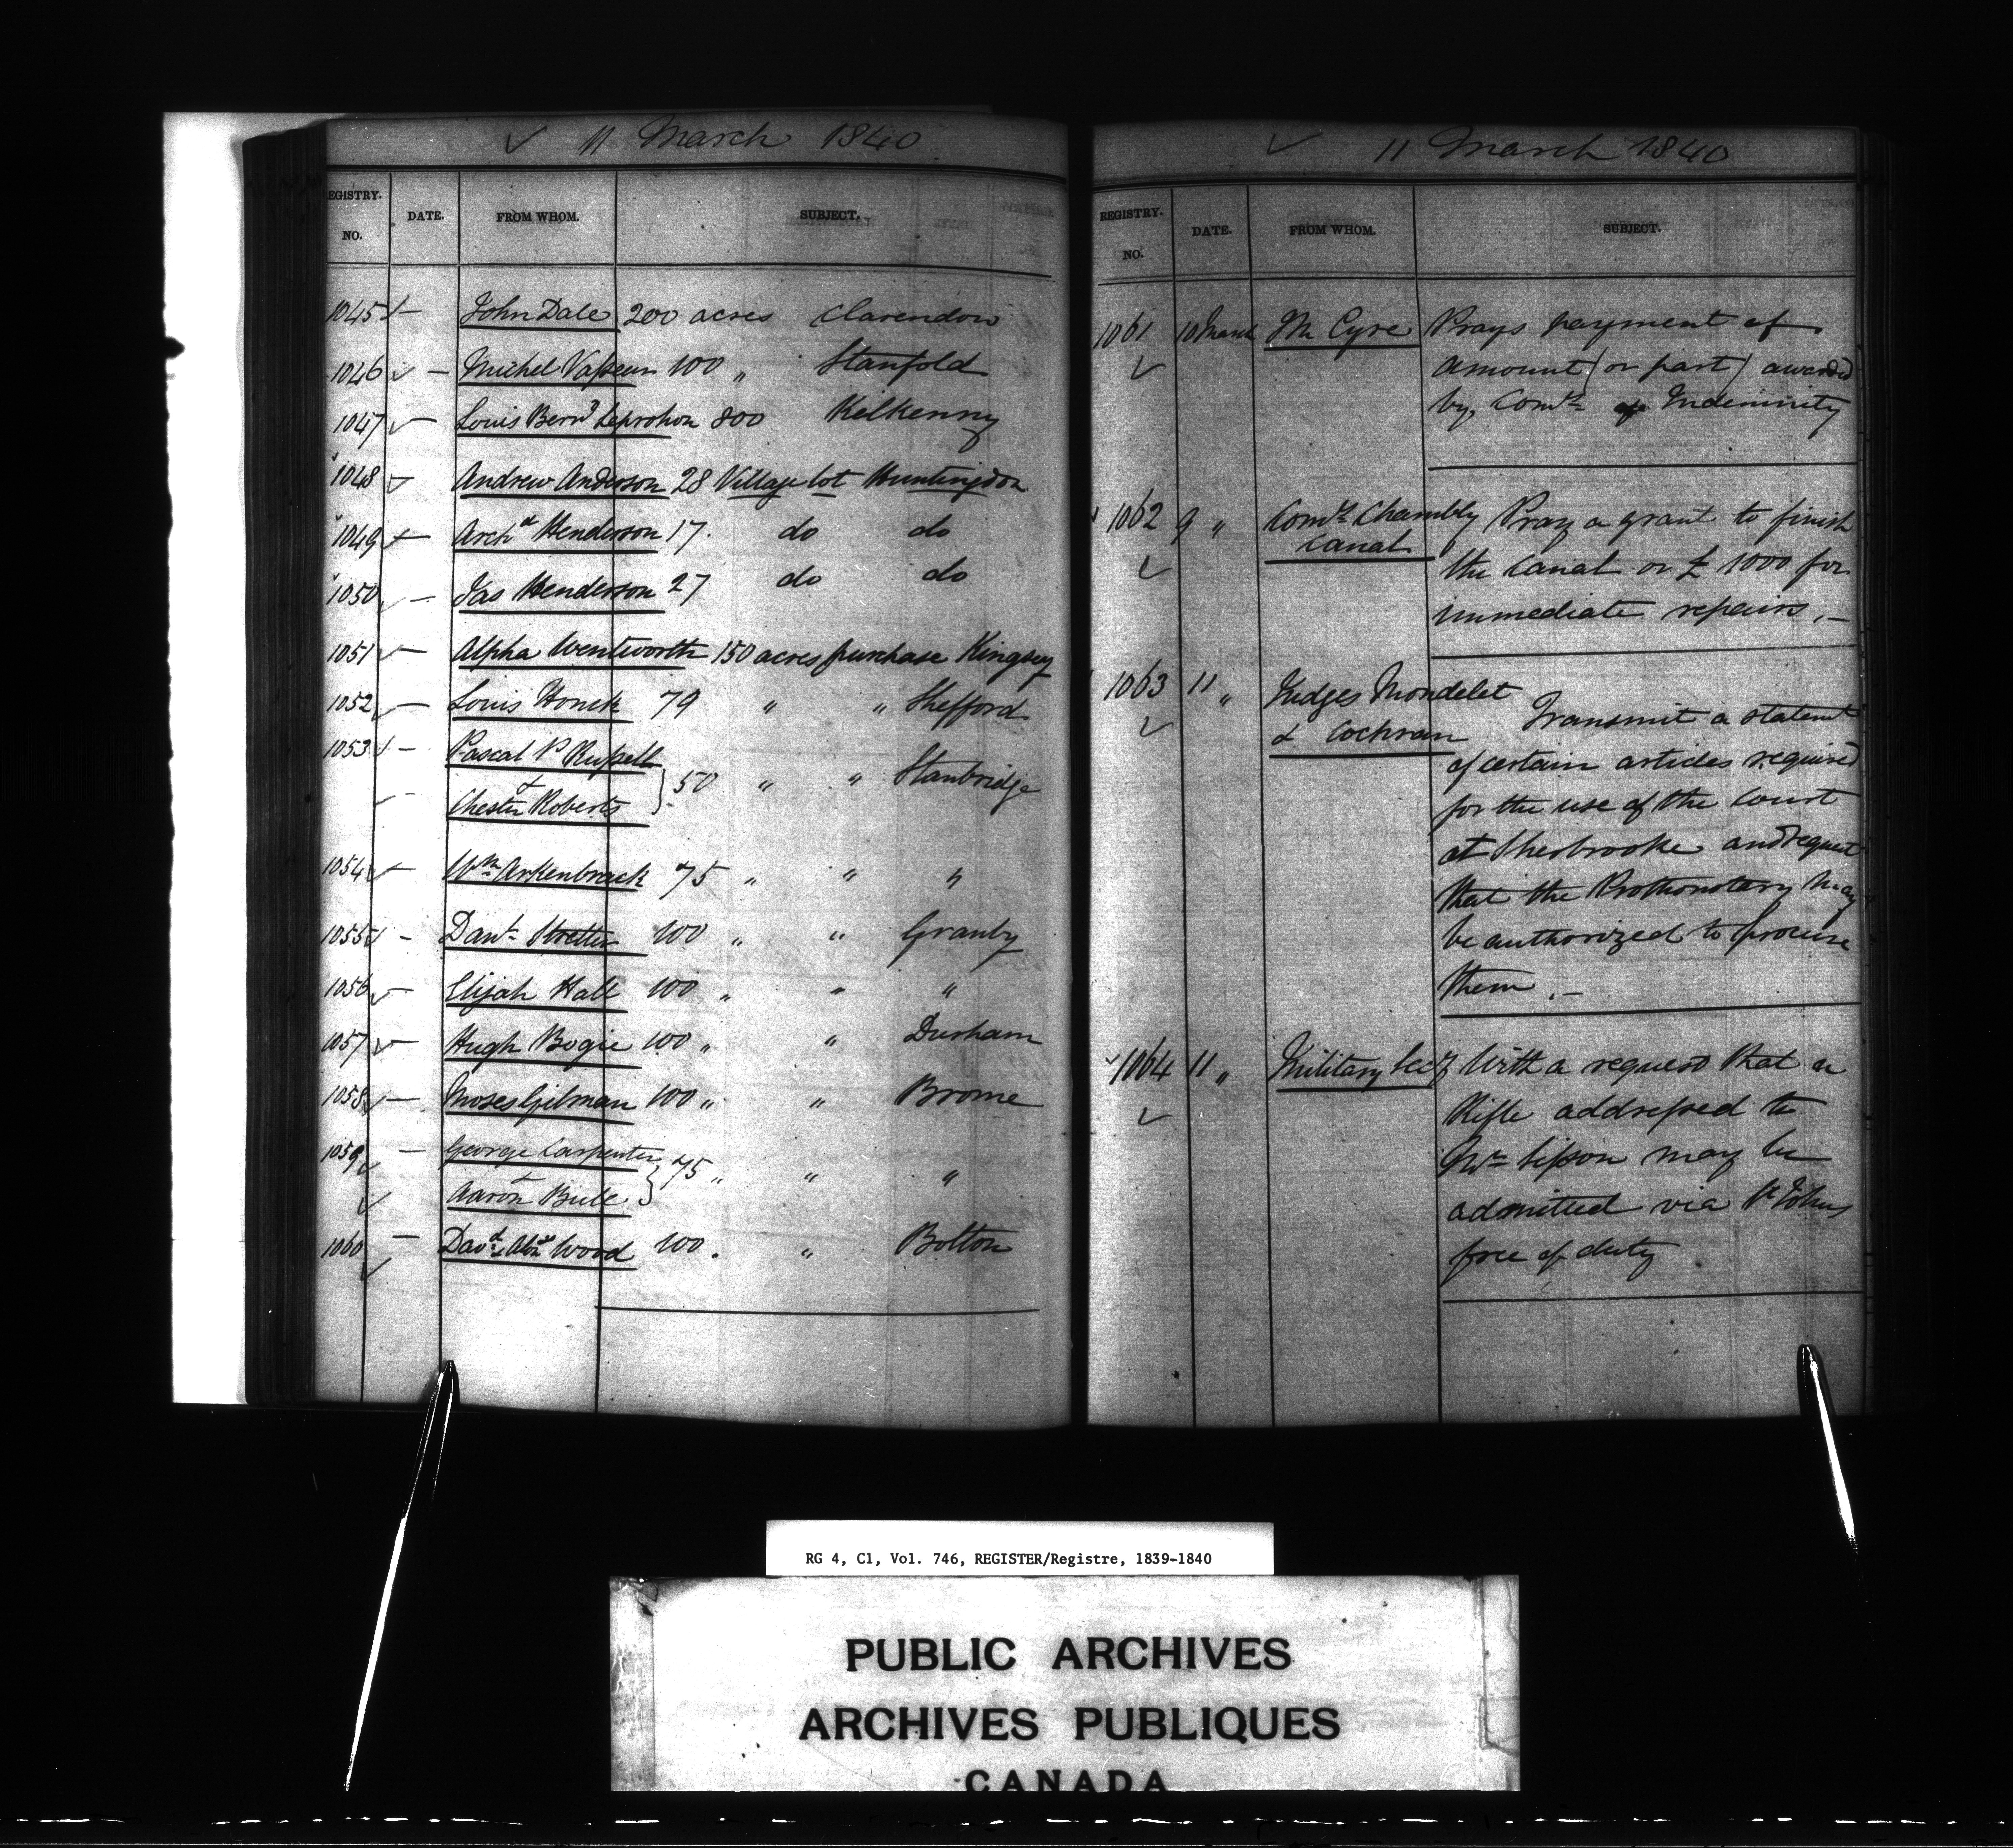 ✓ 11 March 1840
EGISTRY. NO. DATE. FROM WHOM. SUBJECT.
1045 ✓ — John Dale 200 acres Clarendon
1046 ✓ — Michel Vasseur 100 " Stanfold
1047 ✓ — Louis Bernd Leprohon 800 Kilkenny
1048 ✓ Andrew Anderson 28 Village lot Huntingdon
1049 ✓ — Archd Henderson 17. do do
1050 ✓ — Jas Henderson 27 do do
1051 ✓ — Alpha Wentworth 150 acres purchase Kingsey
1052 ✓ — Louis Honck 79 " " Shefford
1053 ✓ — Pascal P Russell
&
Chester Roberts } 50 " " Stanbridge
1054 ✓ — Wm Arkenbrack 75 " " "
1055 ✓ — Danl Stretter 100 " " Granby
1056 ✓ — Elijah Hall 100 " " "
1057 ✓ — Hugh Bogie 100 " " Durham
1058 ✓ — Moses Gilman 100 " " Brome
1059 ✓ — George Carpenter
&
✓ Aaron Bull } 75 " " "
1060 ✓ — Davd & Wood 100. " Bolton
✓ 11 March 1840
REGISTRY. NO. DATE. FROM WHOM. SUBJECT.
1061 ✓ 10 March M Cyre Prays payment of
amount (or part) awarded
by Comrs of Indemnity
1062 ✓ 9 " Comrs Chambly
Canal
Pray a grant to finish
the Canal or £ 1000 for
immediate repairs. —
1063 ✓ 11 " Judges Mondelet
& Cochran
Transmit a statemt
of certain articles required
for the use of the Court
at Sherbrooke and request
that the Prothonotary may
be authorized to procure
them. —
1064 ✓ 11 " Military Secy With a request that a
Rifle addressed to
Mr Sisson may be
admitted via St Johns
free of duty
RG 4, C1, Vol. 746, REGISTER/Registre, 1839-1840
PUBLIC ARCHIVES
ARCHIVES PUBLIQUES
CANADA